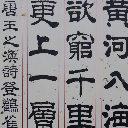 黄河入海
欲窮千里
更上一層
唐王之渙詩登鸛雀